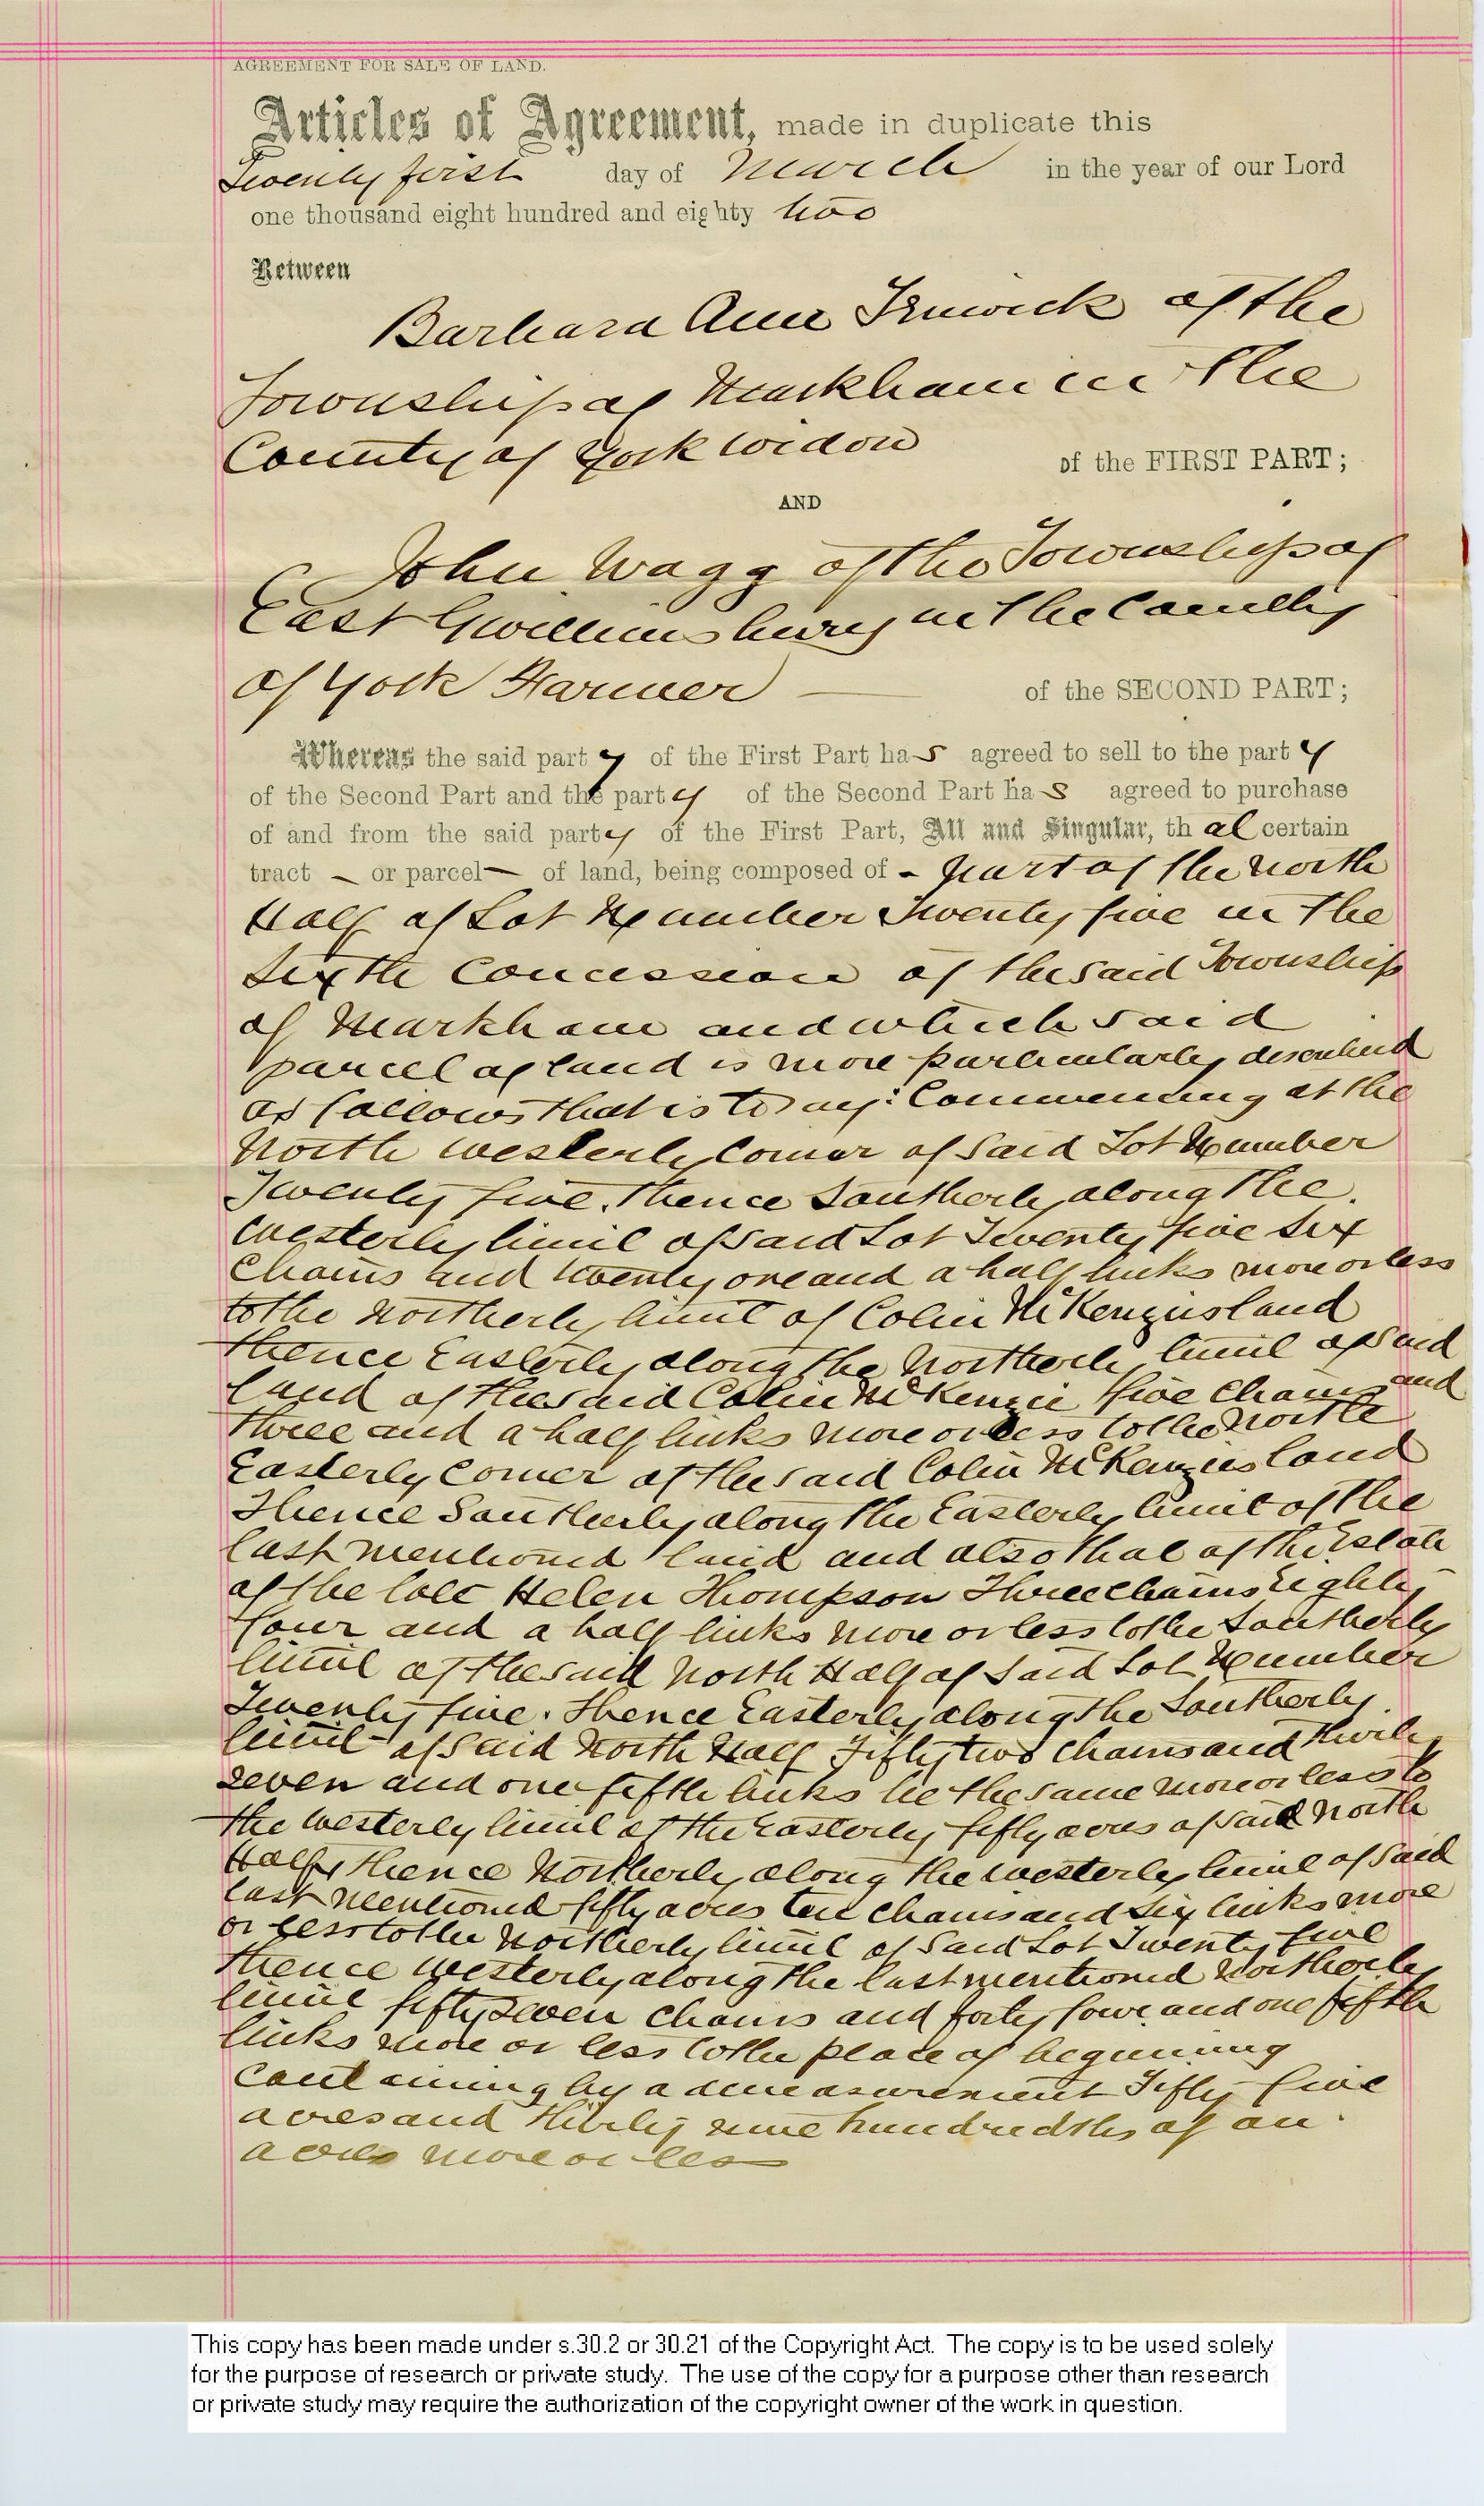 AGREEMENT FOR SALE OF LAND.
Articles of Agreement, made in duplicate this
Twenty first day of March in the year of our Lord
one thousand eight hundred and eighty two
Between
Barbara Ann Fenwick of the
Township of Markham in the
County of York widow of the FIRST PART;
AND
John Wagg of the Township of
East Gwillimsbury in the County
of York Farmer — of the SECOND PART;
Whereas the said party of the First Part has agreed to sell to the party
of the Second Part and the party of the Second Part has agreed to purchase
of and from the said party of the First Part, All and Singular, that certain
tract - or parcel - of land, being composed of - part of the North
Half of Lot Number Twenty five in the
Sixth Concession of the said Township
of Markham and which said
parcel of land is more particularly described
as follows that is to say: Commencing at the
North westerly Corner of said Lot Number
Twenty five. Thence Southerly along the
westerly limit of said Lot Twenty five Six
Chains and twenty one and a half links more or less
to the Northerly limit of Colin McKenzies land
thence Easterly along the Northerly limit of said
land of the said Colin McKenzie five chains and
three and a half links more or less to the North
Easterly corner of the said Colin McKenzies land
Thence Southerly along the Easterly limit of the
last mentioned land and also that of the Estate
of the late Helen Thompson Three Chains Eighty
four and a half links more or less to the Southerly
limit of the said North Half of said Lot Number
Twenty five. Thence Easterly along the Southerly
limit of said North Half Fifty two Chains and thirty
seven and one fifth links be the same more or less to
the westerly limit of the Easterly fifty acres of said North
Half, thence Northerly along the westerly limit of said
last mentioned fifty acres ten chains and six links more
or less to the Northerly limit of said Lot Twenty five
thence westerly along the last mentioned Northerly
limit fifty seven chains and forty four and one fifth
links more or less to the place of beginning
Containing by admeasurement Fifty five
acres and thirty nine hundredths of an
acres more or less
This copy has been made under s.30.2 or 30.21 of the Copyright Act. The copy is to be used solely
for the purpose of research or private study. The use of the copy for a purpose other than research
or private study may require the authorization of the copyright owner of the work in question.